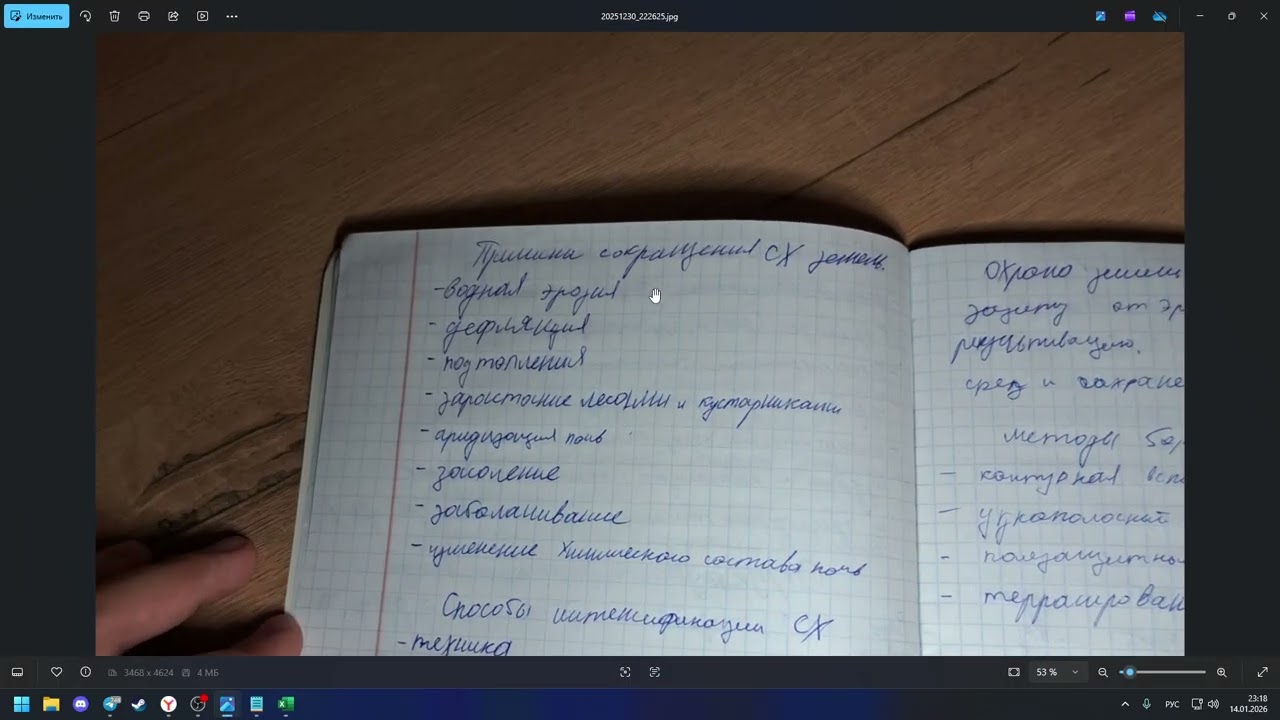 Изменить
20251230_222625.jpg
Причины сокращения СХ земель.
-водная эрозия
- дефляция
- подтопления
- зарастание лесами и кустарниками
- аридизация почв
- засоление
- заболачивание
- изменение химического состава почв
Способы интенсификации СХ
- техника
Охрана земель
защиту от эр
рекультивацию.
сред и сохране
методы бор
- контурная всп
- узкополосный
- полезащитны
- террасирован
3468 x 4624
4 МБ
53 %
РУС
23:18
14.01.2026